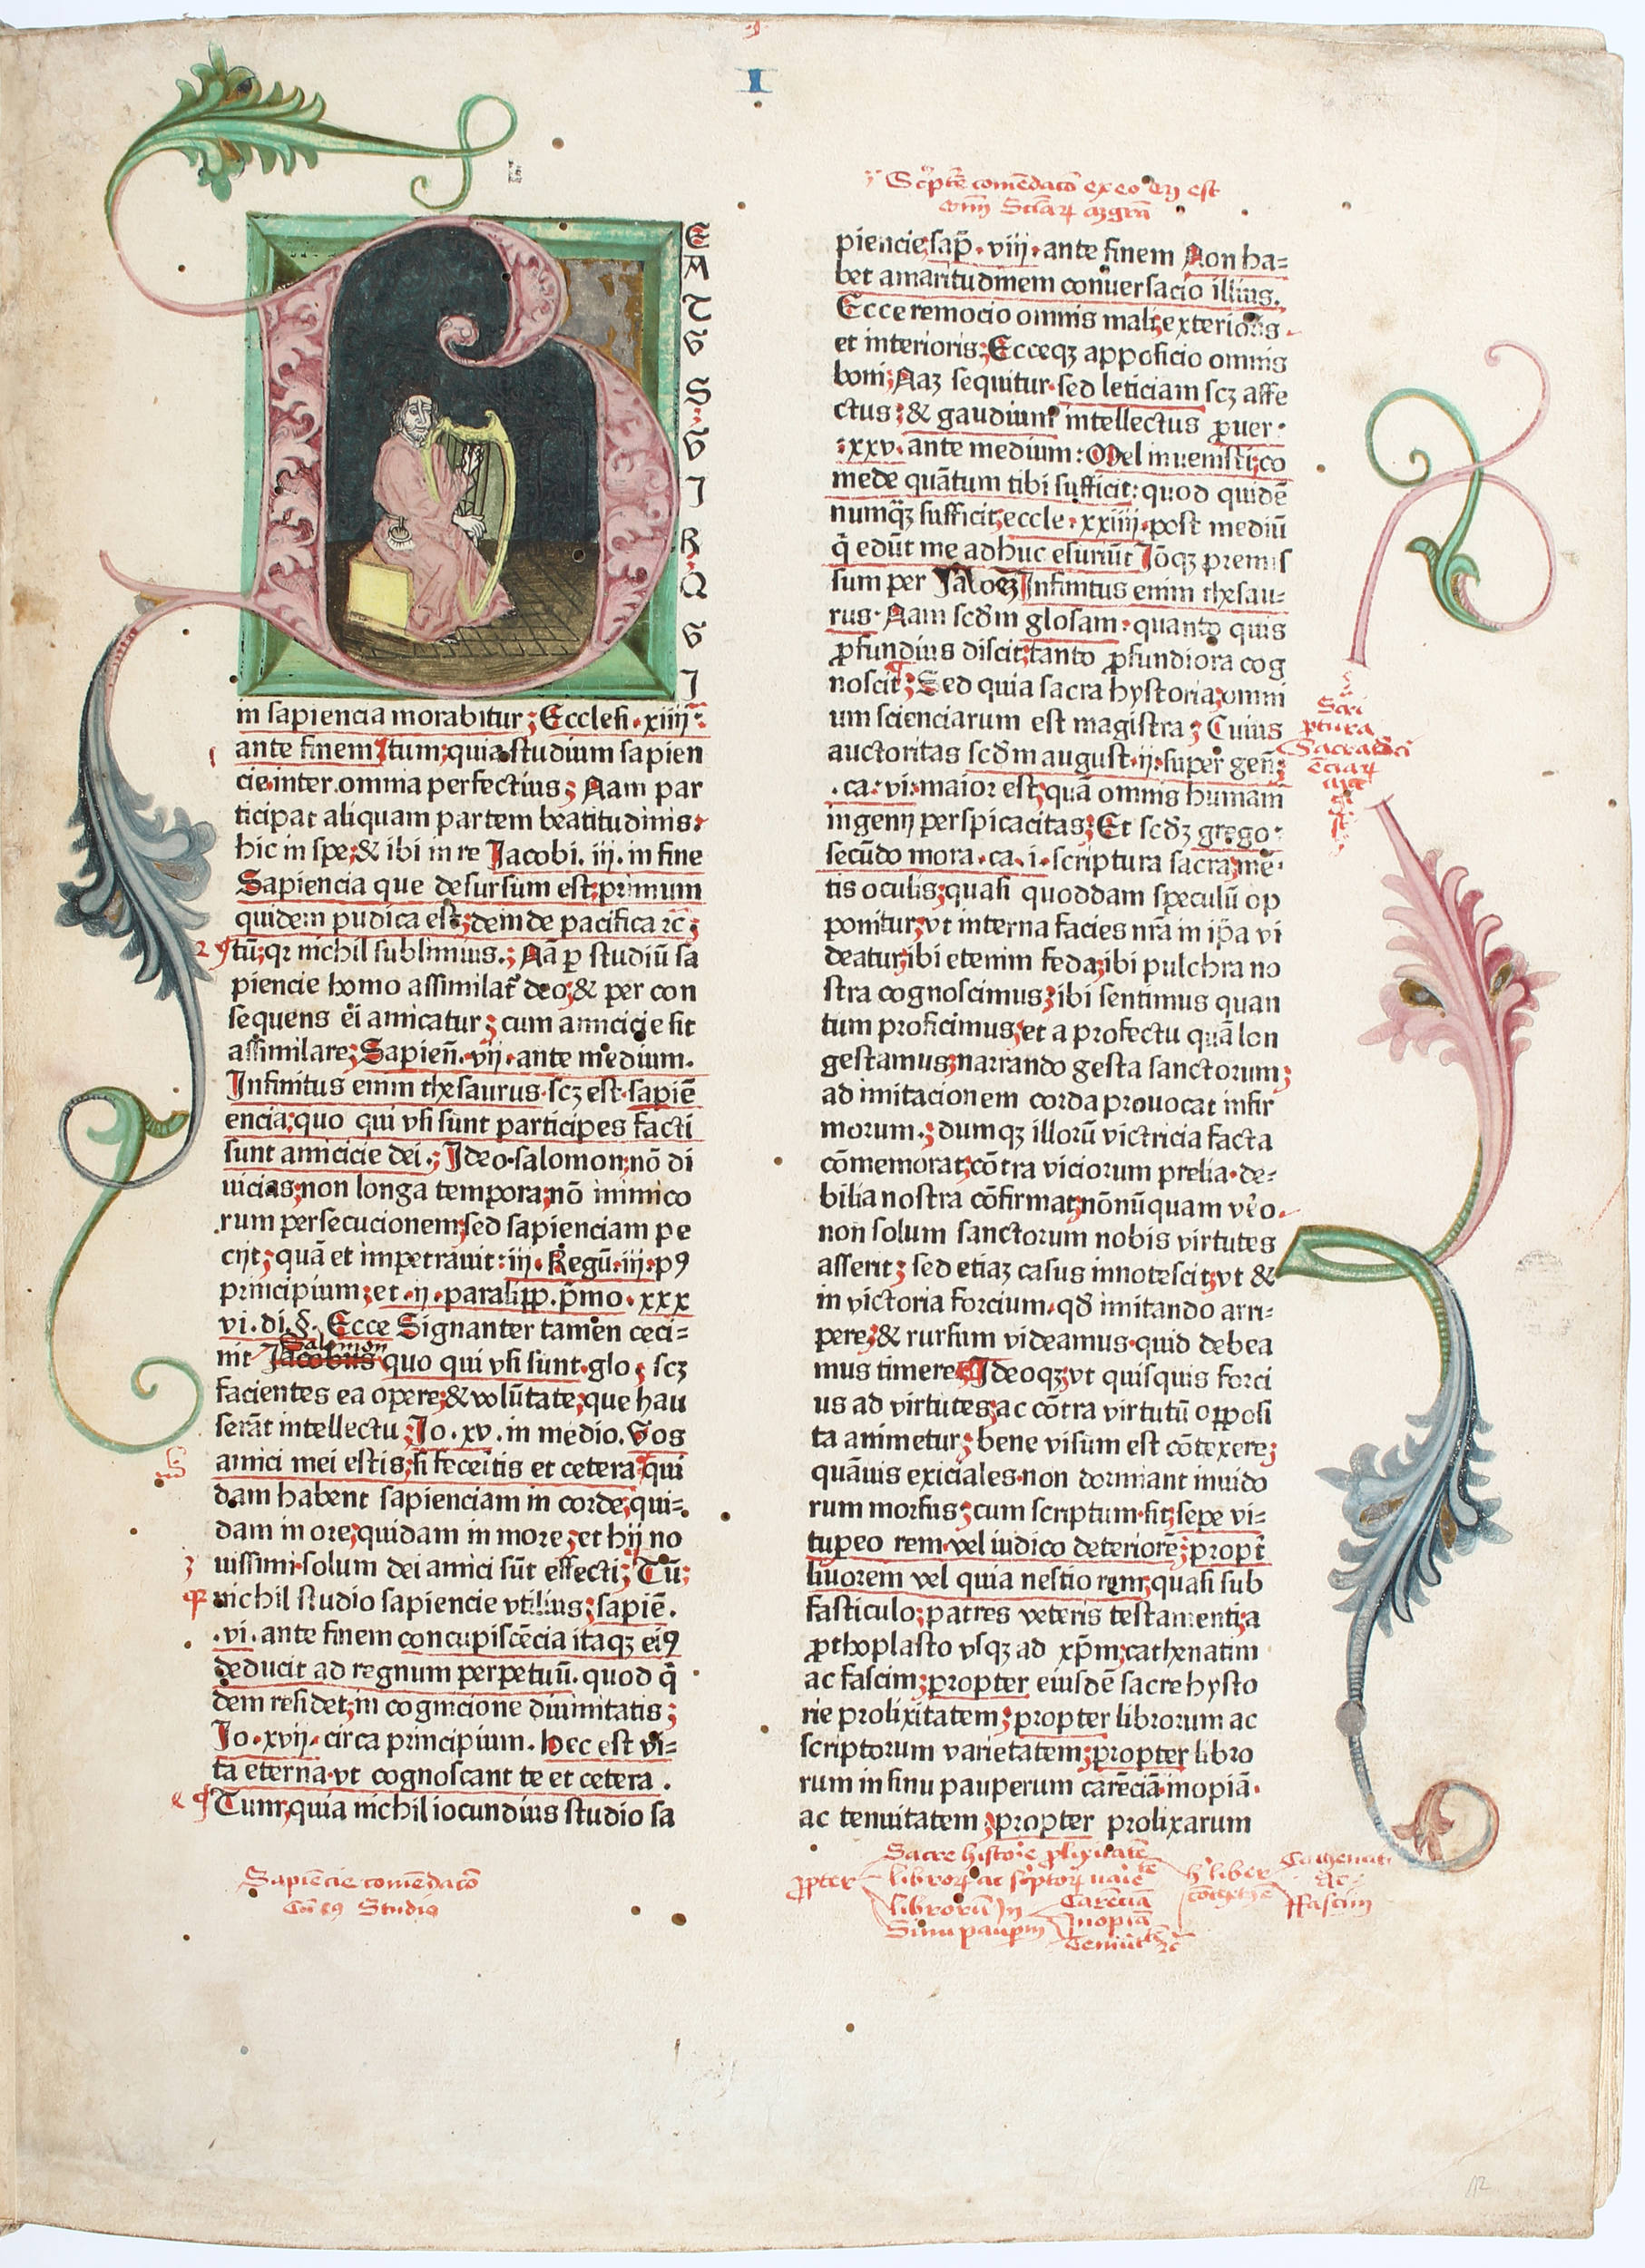 I
E
A
T
V
S
V
I
R
Q
V
I
in sapiencia morabitur; Ecclesi· xiiij·
ante finem Itum; quia studium sapien
cie inter omnia perfectius; Nam par
ticipat aliquam partem beatitudinis·
hic in spe; & ibi in re Jacobi. iij. in fine
Sapiencia que desursum est; primum
quidem pudica est; deinde pacifica ⁊c̄;
2 ¶tū; qꝛ nichil sublimius.; Nā ꝑ studiū sa
piencie homo assimilat̉ deo; & per con
sequens ei amicatur; cum amicicie sit
assimilare; Sapien̄. vij. ante medium.
Infinitus enim thesaurus· scꝫ est· sapiē
encia; quo qui vsi sunt participes facti
sunt amicicie dei.; Ideo· salomon; nō di
uicias; non longa tempora; nō inimico
rum persecucionem; sed sapienciam pe
cijt; quā et impetrauit: iij. Regū· iij· pꝰ
principium; et. ij. paralipp. p̄mo. xxx
vi. di. §. Ecce Signanter tamen ceci=
Salomon
nit Jacobus quo qui vsi sunt· glo; scꝫ
facientes ea opere; & volūtate; que hau
serāt intellectu; Jo. xv. in medio. Vos
amici mei estis; si feceitis et cetera; qui
dam habent sapienciam in corde; qui=
dam in ore; quidam in more; et hij no
3 uissimi· solum dei amici sūt effecti; Tū;
¶ nichil studio sapiencie vtilius; sapiē.
. vi. ante finem concupiscēcia itaqꝫ eiꝰ
deducit ad regnum perpetuū. quod q̄
dem residet; in cognicione diuinitatis;
Jo. xvij. circa principium. hec est vi=
ta eterna· vt cognoscant te et cetera.
¶ Tum; quia nichil iocundius studio sa
Sapiēncie comēdacō
Studio
est
piencie; sap̄. viij. ante finem Non ha=
bet amaritudinem conuersacio illius.
Ecce remocio omnis mali; exterioris
et interioris; Ecceqꝫ apposicio omnis
boni; Naꝫ sequitur· sed leticiam scꝫ affe
ctus; & gaudium intellectus ꝓuer·
: xxv. ante medium: Mel inuenisti; co
mede quātum tibi sufficit: quod quidē
numqꝫ sufficit; eccle. xxiiij. post mediū
q̄ edūt me adhuc esuriūt Jōqꝫ premis
sum per Infinitus enim thesau=
rus· Nam scd̄m glosam· quanto quis
ꝓfundius discit; tanto ꝓfundiora cog
noscit; Sed quia sacra hystoria; omni
um scienciarum est magistra; Cuius
auctoritas scd̄m august· ij. super gen̄;
. ca. vi. maior est; quā omnis humani
ingenij perspicacitas; Et scd̄ꝫ grego·
secūdo mora. ca. i. scriptura sacra; mē·
tis oculis; quasi quoddam speculū op
ponitur; vt interna facies nr̄a in ip̄a vi
deatur; ibi etenim feda; ibi pulchra no
stra cognoscimus; ibi sentimus quan
tum proficimus; et a profectu quā lon
gestamus; narrando gesta sanctorum;
ad imitacionem corda prouocat infir
morum.; dumqꝫ illorū victricia facta
cōmemorat; cōtra viciorum prelia· de=
bilia nostra cōfirmat; nōnūquam v̉o.
non solum sanctorum nobis virtutes
asserit; sed etiaꝫ casus innotescit; vt &
in victoria forcium. qd̄ imitando arri=
pere; & rursum videamus· quid debea
mus timere; Ideoqꝫ; vt quisquis forci
us ad virtutes; ac cōtra virtutū opposi
ta animetur; bene visum est cōtexere;
quāuis exiciales· non dormiant inuido
rum morsus; cum scriptum· sit; sepe vi=
tupeo rem· vel iudico deteriorē; propt̄
liuorem vel quia nescio rem; quasi sub
fasticulo; patres veteris testamenti; a
ꝓthoplasto vsqꝫ ad xp̄m; cathenatim
ac fascim; propter eiusdē sacre hysto
rie prolixitatem; propter librorum ac
scriptorum varietatem; propter libro
rum in sinu pauperum carēciā· inopiā·
ac tenuitatem; propter prolixarum
Scri
ptura
Sacra
ꝓpter
Sacre historie ꝓlixitatē
libroꝝ ac sc̉ptoꝝ
librorū In
Sinu pauꝑum
Carēciā
Inopiā
h̉ liber
Cathenat
Ac
Fascim